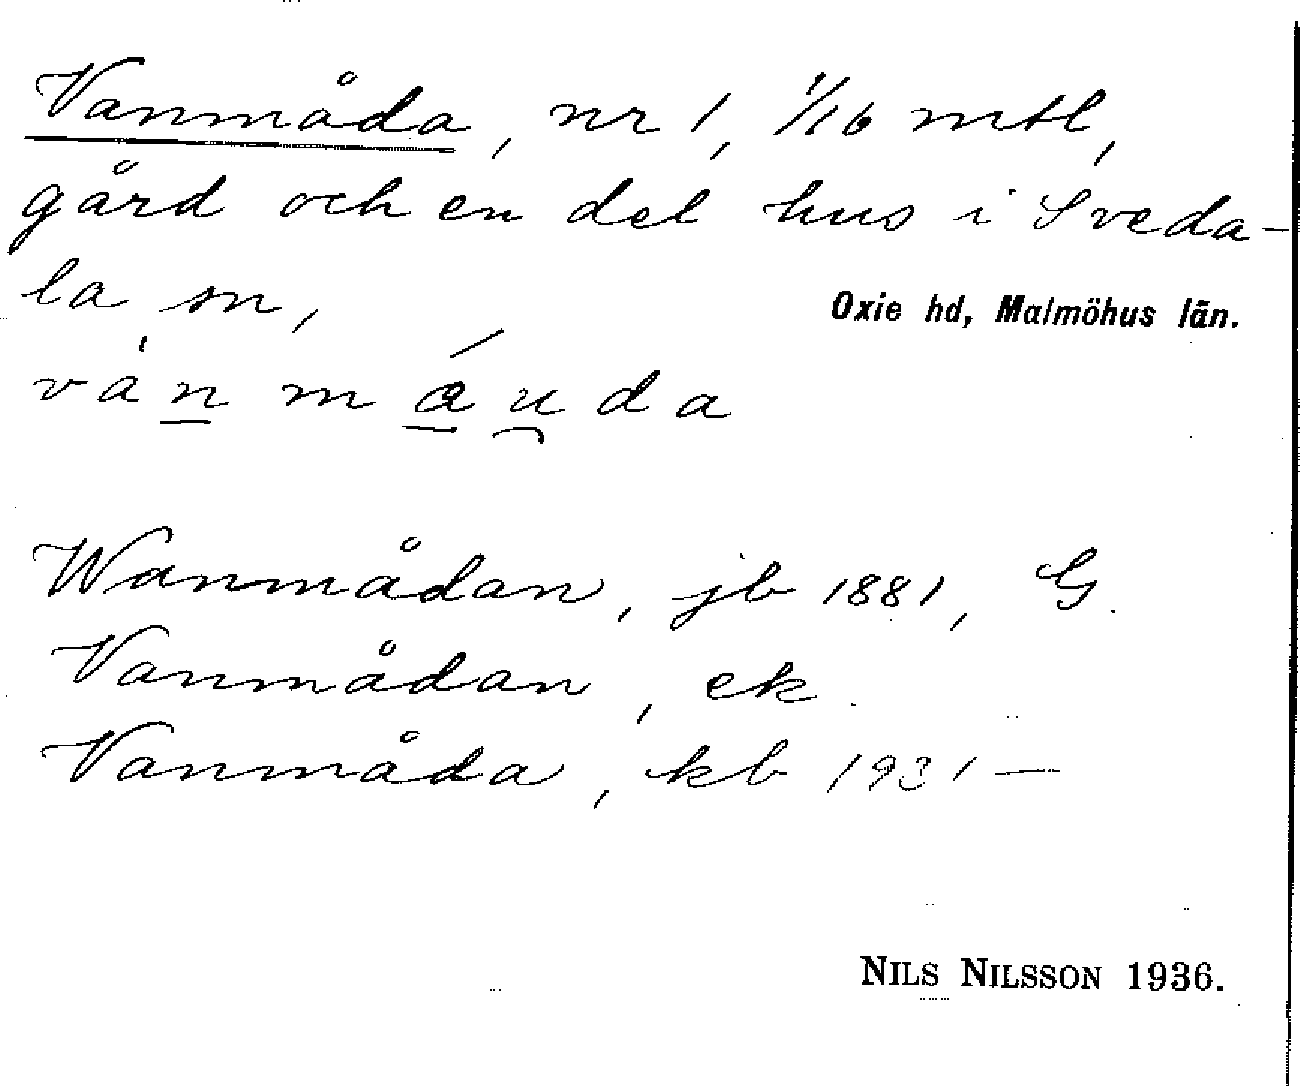 Vanmåda, nr 1, 1/16 mtl,
gård och en del hus i Sveda-
la sn, Oxie hd, Malmöhus län.
vànmáuda
Wanmådan, jb 1881, G.
Vanmådan, ek.
Vanmåda, kb 1931—
NILS NILSSON 1936.